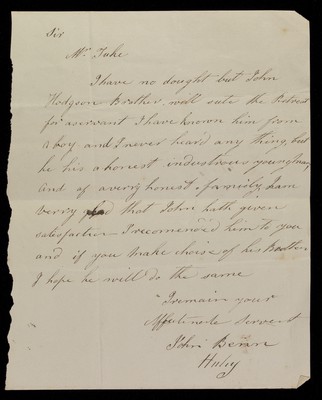 Sir
Mr Tuke
I have no dought but John
Hodgson Brother will sute the Retreat
for a servant I have known him from
a boy and I never heard any thing but
he his a honest industrous young man
and of a verry honest family I am
verry glad that John hath given
satisfaction I recomenced him to you
and if you make choise of his Brother
I hope he will do the same
I remain your
Affectinate servent
John